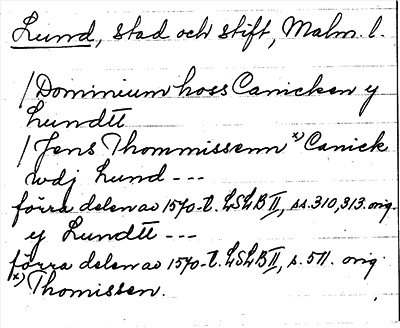 Lund, stad och stift, Malm. l.
/Dominium hoss Canicken y
Lundtt
/Jens Thommissenn x) Canick
wdj Lund ---
förra delen av 1570-t. LSLB II, ss. 310, 313. orig.
y Lundtt ---
förra delen av 1570-t. LSLB II, s. 511. orig.
x) Thomissen.